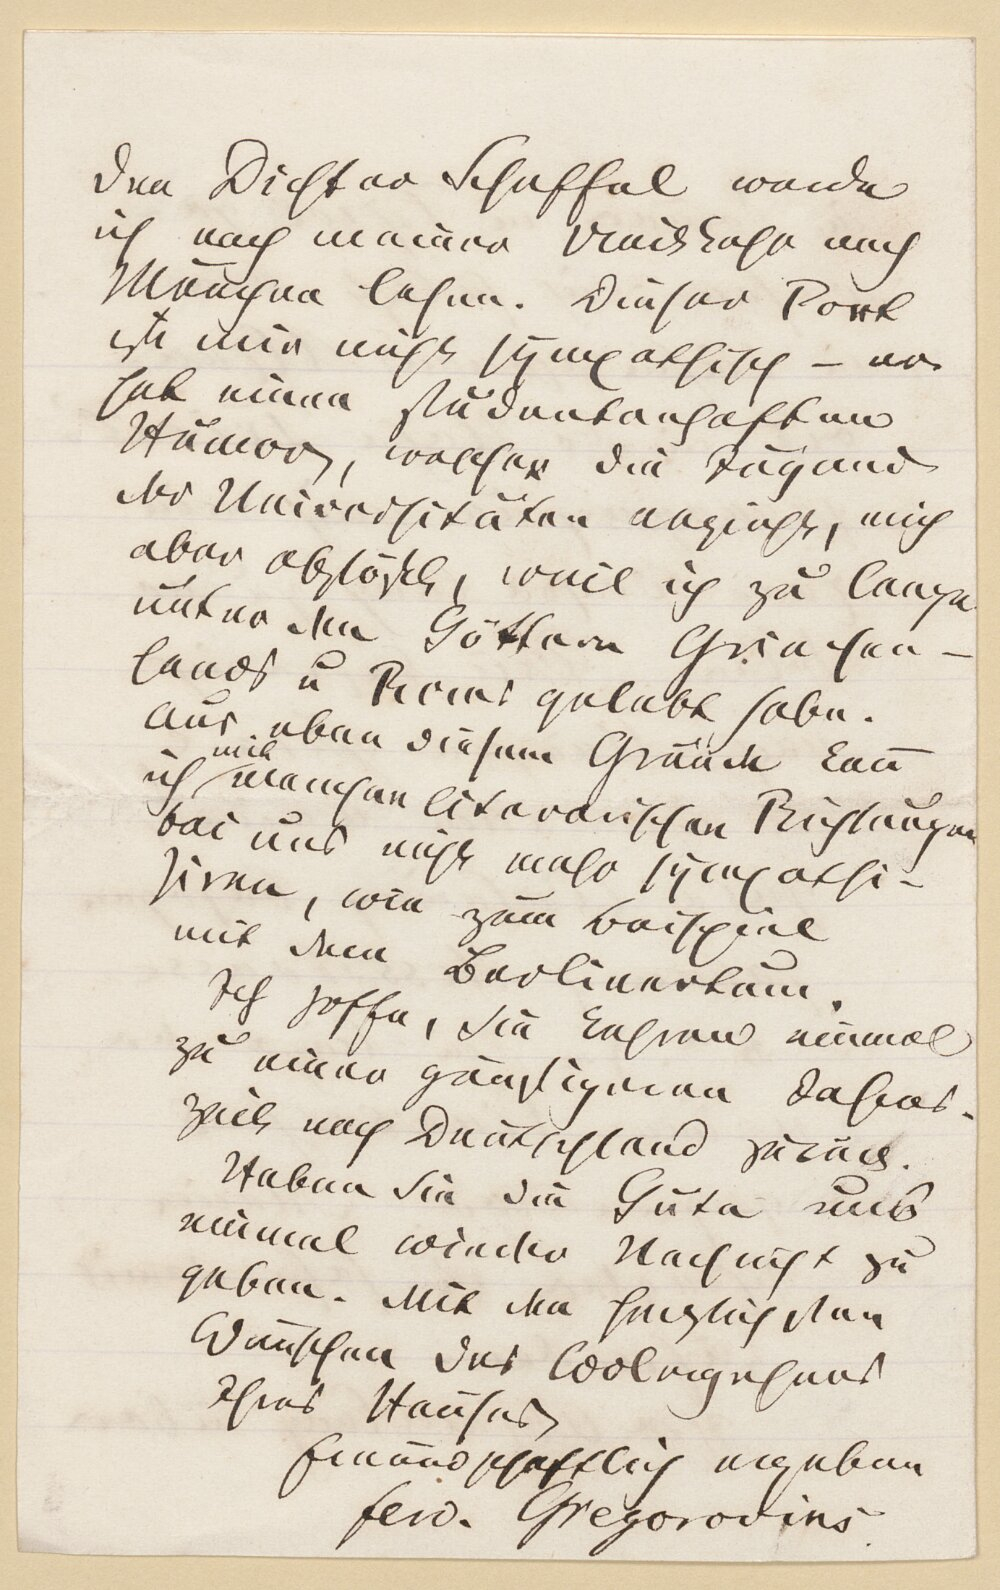 den Dichter Scheffel werde
ich nach meiner Rückkehr nach
München lesen. Dieser Poet
ist mir nicht sympathisch – er
hat einen studentenhaften
Humor, welcher die Jugend
der Universitäten anzieht, mich
aber abstößt, weil ich zu lange
unter den Göttern Griechen-
lands u Roms gelebt habe.
Aus eben diesem Grunde kan̄
ich mit manchen literarischen Richtungen
bei uns nicht mehr sympathi-
siren, wie zum beispiel
mit dem Berlinertum.
Ich hoffe, Sie kehren einmal
zu einer günstigeren Jahres-
zeit nach Deutschland zurück.
Haben Sie die Güte uns
einmal wieder Nachricht zu
geben. Mit den herzlichsten
Wünschen des Wolergehens
Ihres Hauses,
freundschaftlich ergeben
Ferd. Gregorovius.